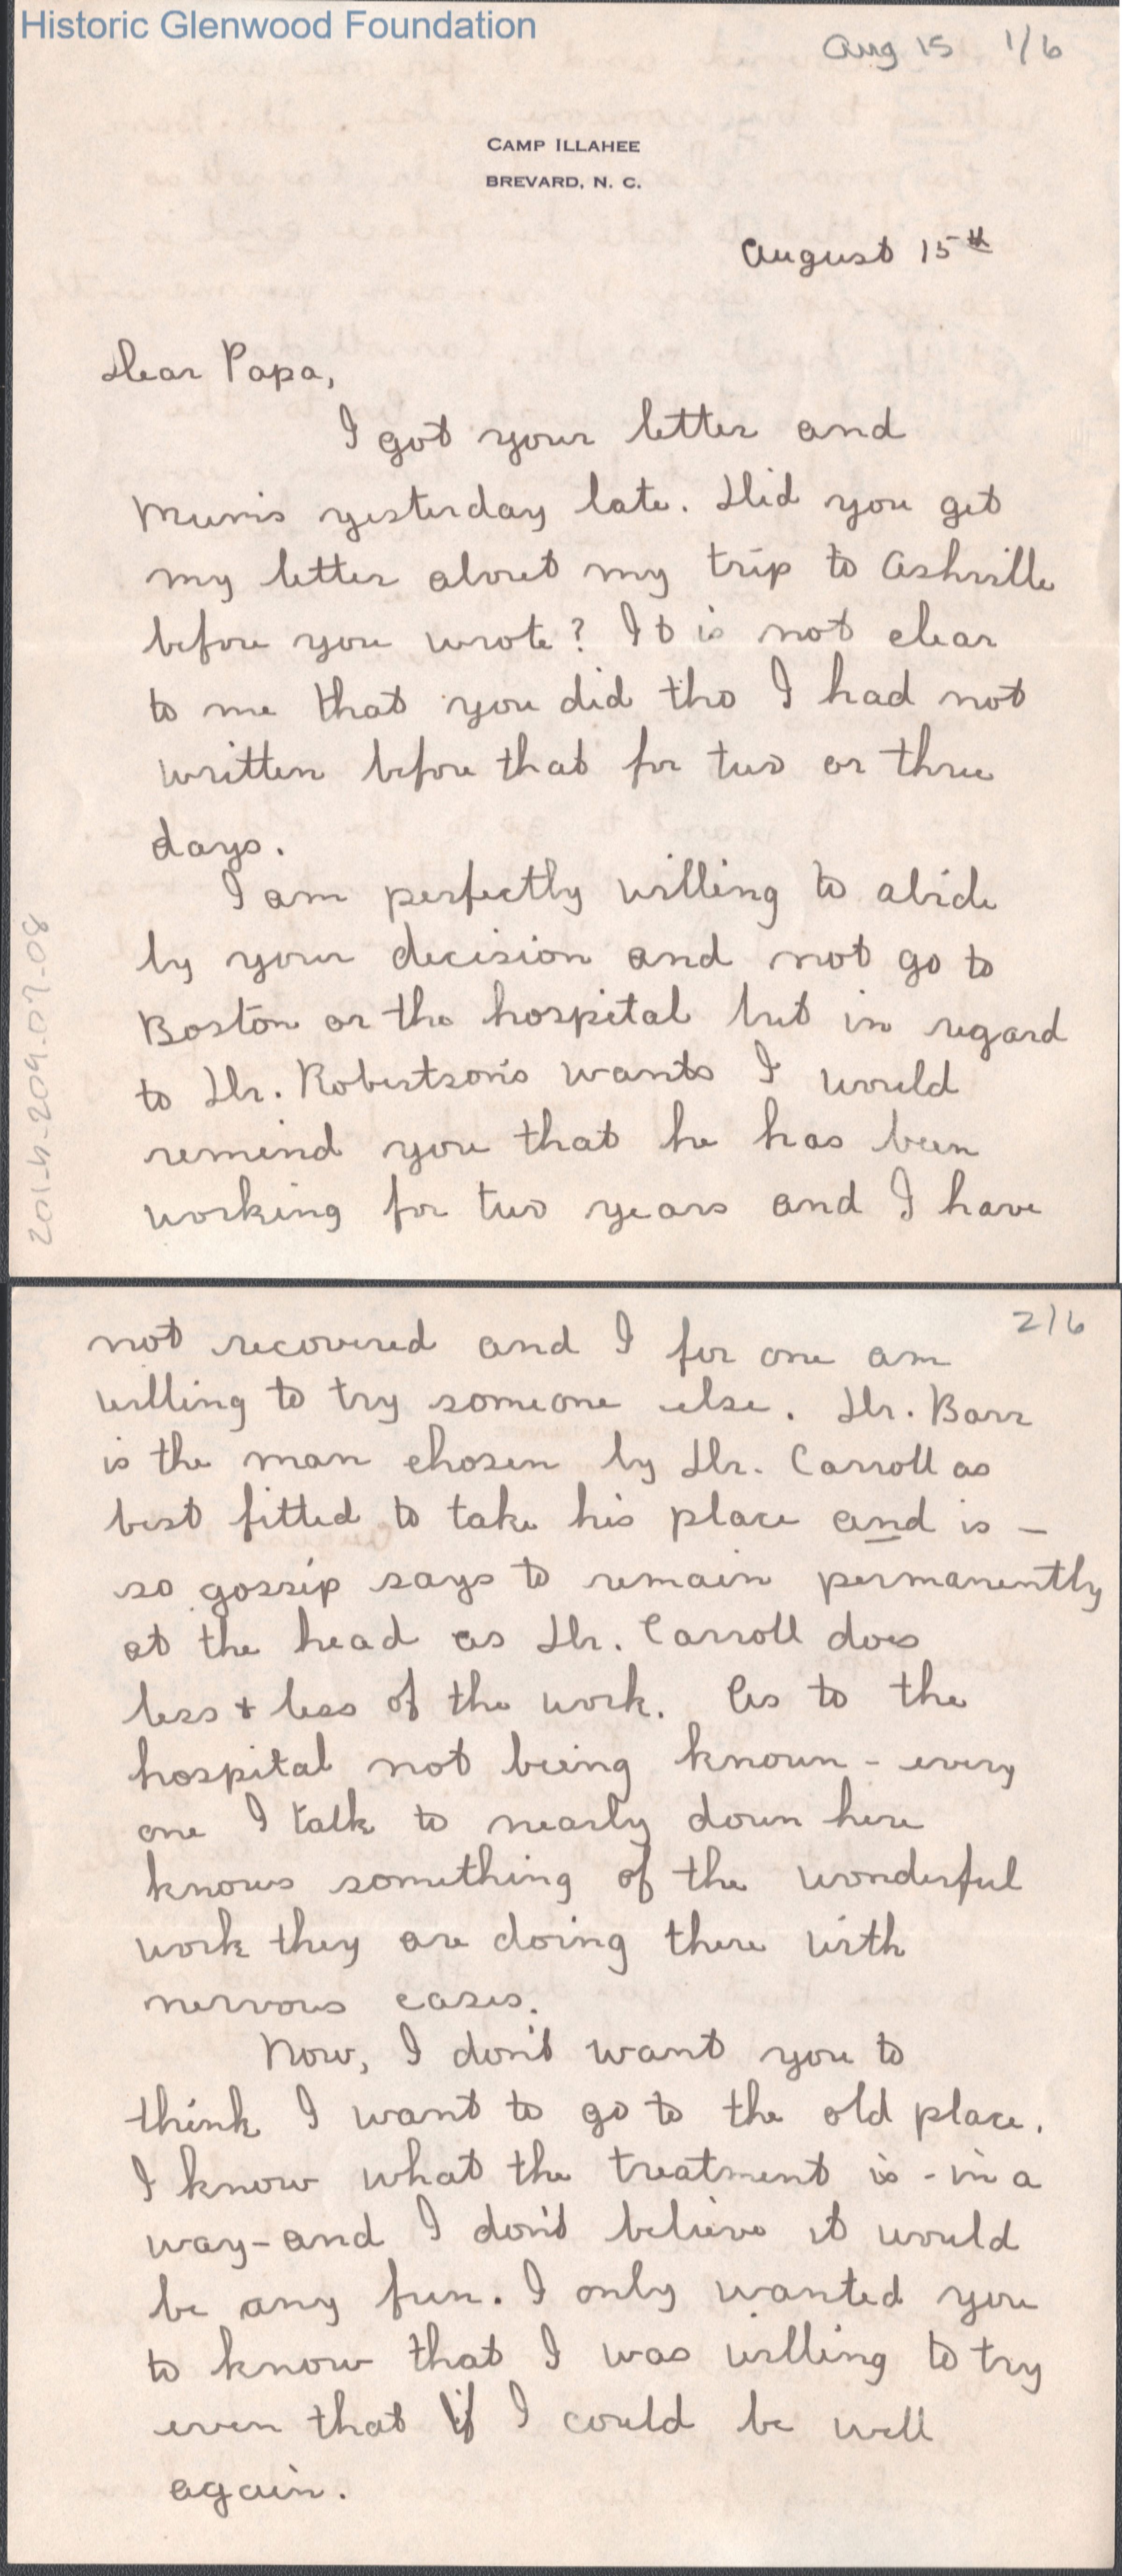 Historic Glenwood Foundation
Aug 15 1/6
CAMP ILLAHEE
BREVARD, N. C.
August 15th
Dear Papa,
I got your letter and
Mum's yesterday late. Did you get
my letter about my trip to Ashville
before you wrote? It is not clear
to me that you did tho I had not
written before that for two or three
days.
I am perfectly willing to abide
by your decision and not go to
Boston or the hospital but in regard
to Dr. Robertson's wants I would
remind you that he has been
working for two years and I have
2014-209-07-08
2/6
not recovered and I for one am
willing to try someone else. Dr. Barr
is the man chosen by Dr. Carroll as
best fitted to take his place and is –
so gossip says to remain permanently
at the head as Dr. Carroll does
less + less of the work. As to the
hospital not being known - every
one I talk to nearly down here
knows something of the wonderful
work they are doing there with
nervous cases.
Now, I don't want you to
think I want to go to the old place.
I know what the treatment is - in a
way - and I don't believe it would
be any fun. I only wanted you
to know that I was willing to try
even that if I could be well
again.